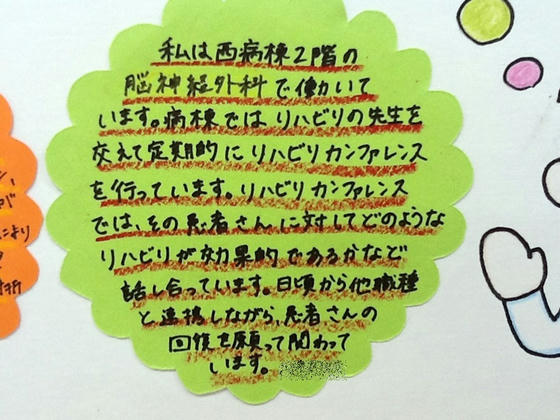 私は西病棟2階の
脳神経外科で働いて
います。病棟ではリハビリの先生を
交えて定期的にリハビリカンファレンス
を行っています。リハビリカンファレンス
では、その患者さんに対してどのような
リハビリが効果的であるかなど
話し合っています。日頃から他職種
と連携しながら、患者さんの
回復を願って関わって
います。